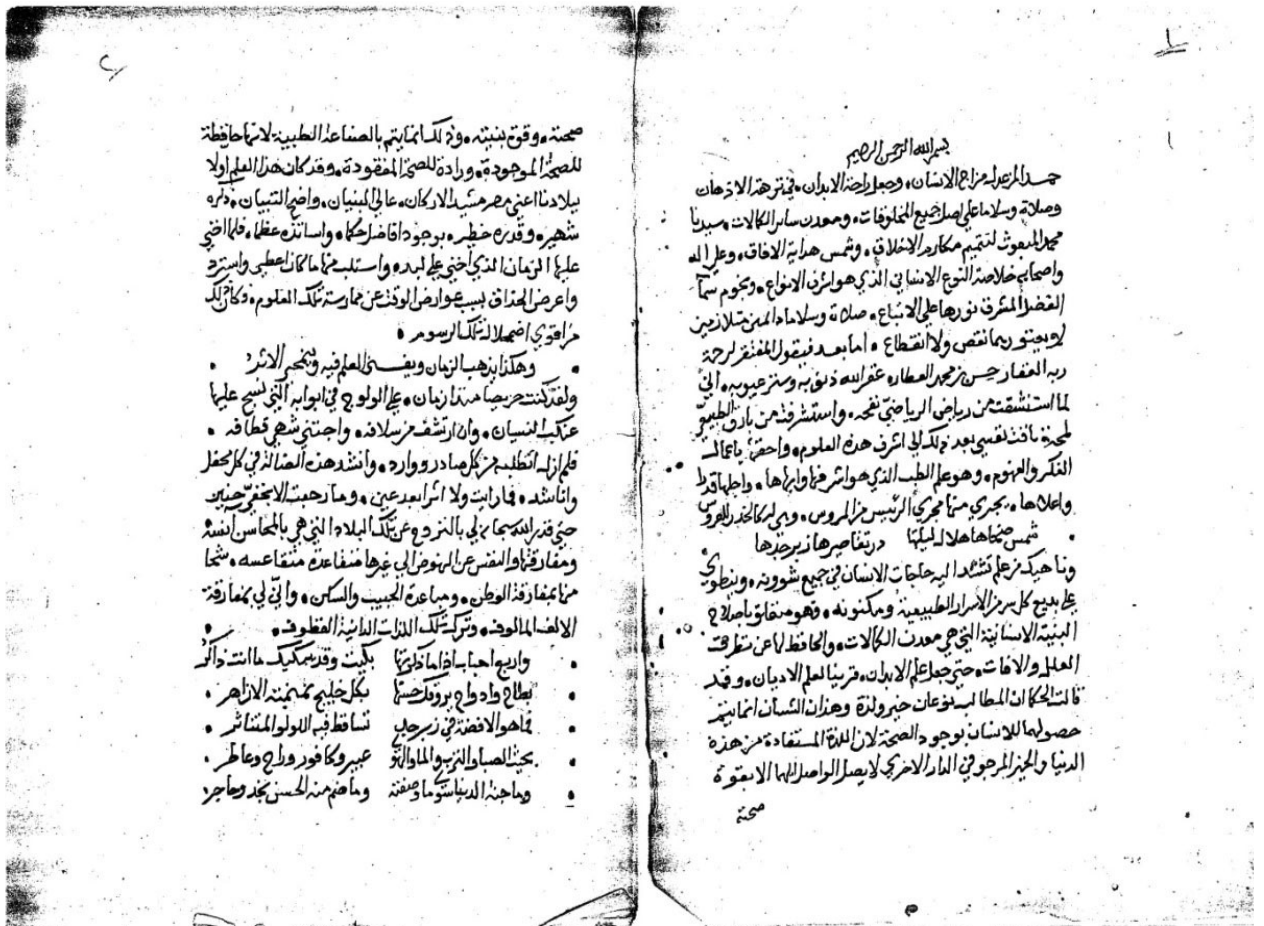 ١
بسم الله الرحمن الرحيم
حمدا لمن عدل مزاج الانسان، وجعل راحة الابدان، في نزهة الاذهان
وصلاة وسلاما على اصل جميع المخلوقات، ومعدن سائر الكمالات، سيدنا
محمد المبعوث لتتميم مكارم الاخلاق، وشمس هداية الافاق، وعلى اله
واصحابه خلاصة النوع الانساني الذي هو اشرف الانواع، ونجوم سما
الفضل المشرق نورها علي الاتباع، صلاة وسلاما دائمين متلازمين
لا يعتورهما نقص ولا انقطاع، اما بعد فيقول المفتقر لرحمة
ربه الغفار حسن بن محمد العطار، غفر الله ذنوبه وستر عيوبه، اني
لما استنشقت من رياض الرياضي نفحه، واستشرفت من بارق الطبيعي
لمحة تاقت نفسي بعد ذلك الي اشرف هذه العلوم، واحقها باعمال
الفكر والفهوم، وهو علم الطب الذي هو اشرفها وابهاها، واجلها قدرا
واعلاها، يجري منها مجري الرئيس من المروس، وهي له كالخدر للعروس
شمس ضحاها هلال ليلتها در تقاصيرها زبرجدها
وناهيك من علم تشتد اليه حاجات الانسان في جميع شوونه، وينطوي
علي بديع كل سر من الاسرار الطبيعية ومكنونه، وهو متعلق باصلاح
البنية الانسانية التي هي معدن الكمالات، والحافظ لها عن تطرقت
العلل والافات، حتي جعل علم الابدان، قرينا لعلم الاديان، وقد
قالت الحكما ان المطالب نوعان خير ولذة وهذان الشيان انما يتم
حصولهما للانسان بوجود الصحة لان اللذة المستفادة من هذه
الدنيا والخير المرجو في الدار الاخري لا يصل الواصل اليهما الا بقوة
صحته
٢
صحته، وقوة بنيته، وذلك انما يتم بالصناعة الطبية لانها حافظة
للصحة الموجودة، ورادة للصحة المفقودة، وقد كان هذا العلم اولا
ببلادنا اعني مصر مشيد الاركان، عالي البنيان، واضح التبيان، ذكره
شهير، وقدره خطير، بوجود افاضل حكما، واساتذه عظما، فلما اخني
عليها الزمان الذي اخني علي لبد، واستلب منها ما كان اعطي واسترد
واعرض الحذاق بسبب عوارض الوقت عن ممارسة تلك العلوم، وكان ذلك
من اقوي اضمحلال تلك الرسوم،
وهكذا يذهب الزمان ويفنى العلم فيه وينمحي الاثر
ولقد كنت حريصا منذ ازمان، علي الولوج في ابوابه التي نسج عليها
عنكب النسيان، وان ارتشف من سلافه، واجتني شهي قطافه،
فلم ازل اتطلبه من كل صادر ووارد، وانشد هذه الضالة في كل محفل
واناشد، فما رايت ولا اثرا بعد عين، وما رجعت الا بخفي حنين
حتي قدر الله سبحانه لي بالنزوح عن تلك البلاد التي هي بالمحاسن آنسة
ومفارقتها والنفس عن النهوض الي غيرها متقاعدة متقاعسه، شحا
منها بمفارقة الوطن، ومباعدة الحبيب والسكن، واني لي بمفارقة
الالف المالوف، وترك تلك اللذات الدانية القطوف،
واربع احباب اذا ما ذكرتها بكيت وقد يبكيك ما انت ذاكر
بطاح وادواح يروقك حسنها بكل خليج نمنمته الازاهر
فما هو الا فضة في زبرجد تساقط فيه اللولو المتناثر
بحيث الصبا والترب والما والهوا عبير وكافور وراح وعاطر
وما جنة الدنيا سوي ما وصفته وما ضم منه الحسن نجد وحاجر